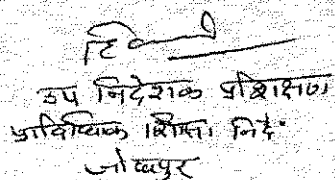 उप निदेशक प्रशिक्षण
प्राविधिक शिक्षा निदे॰
जोधपुर